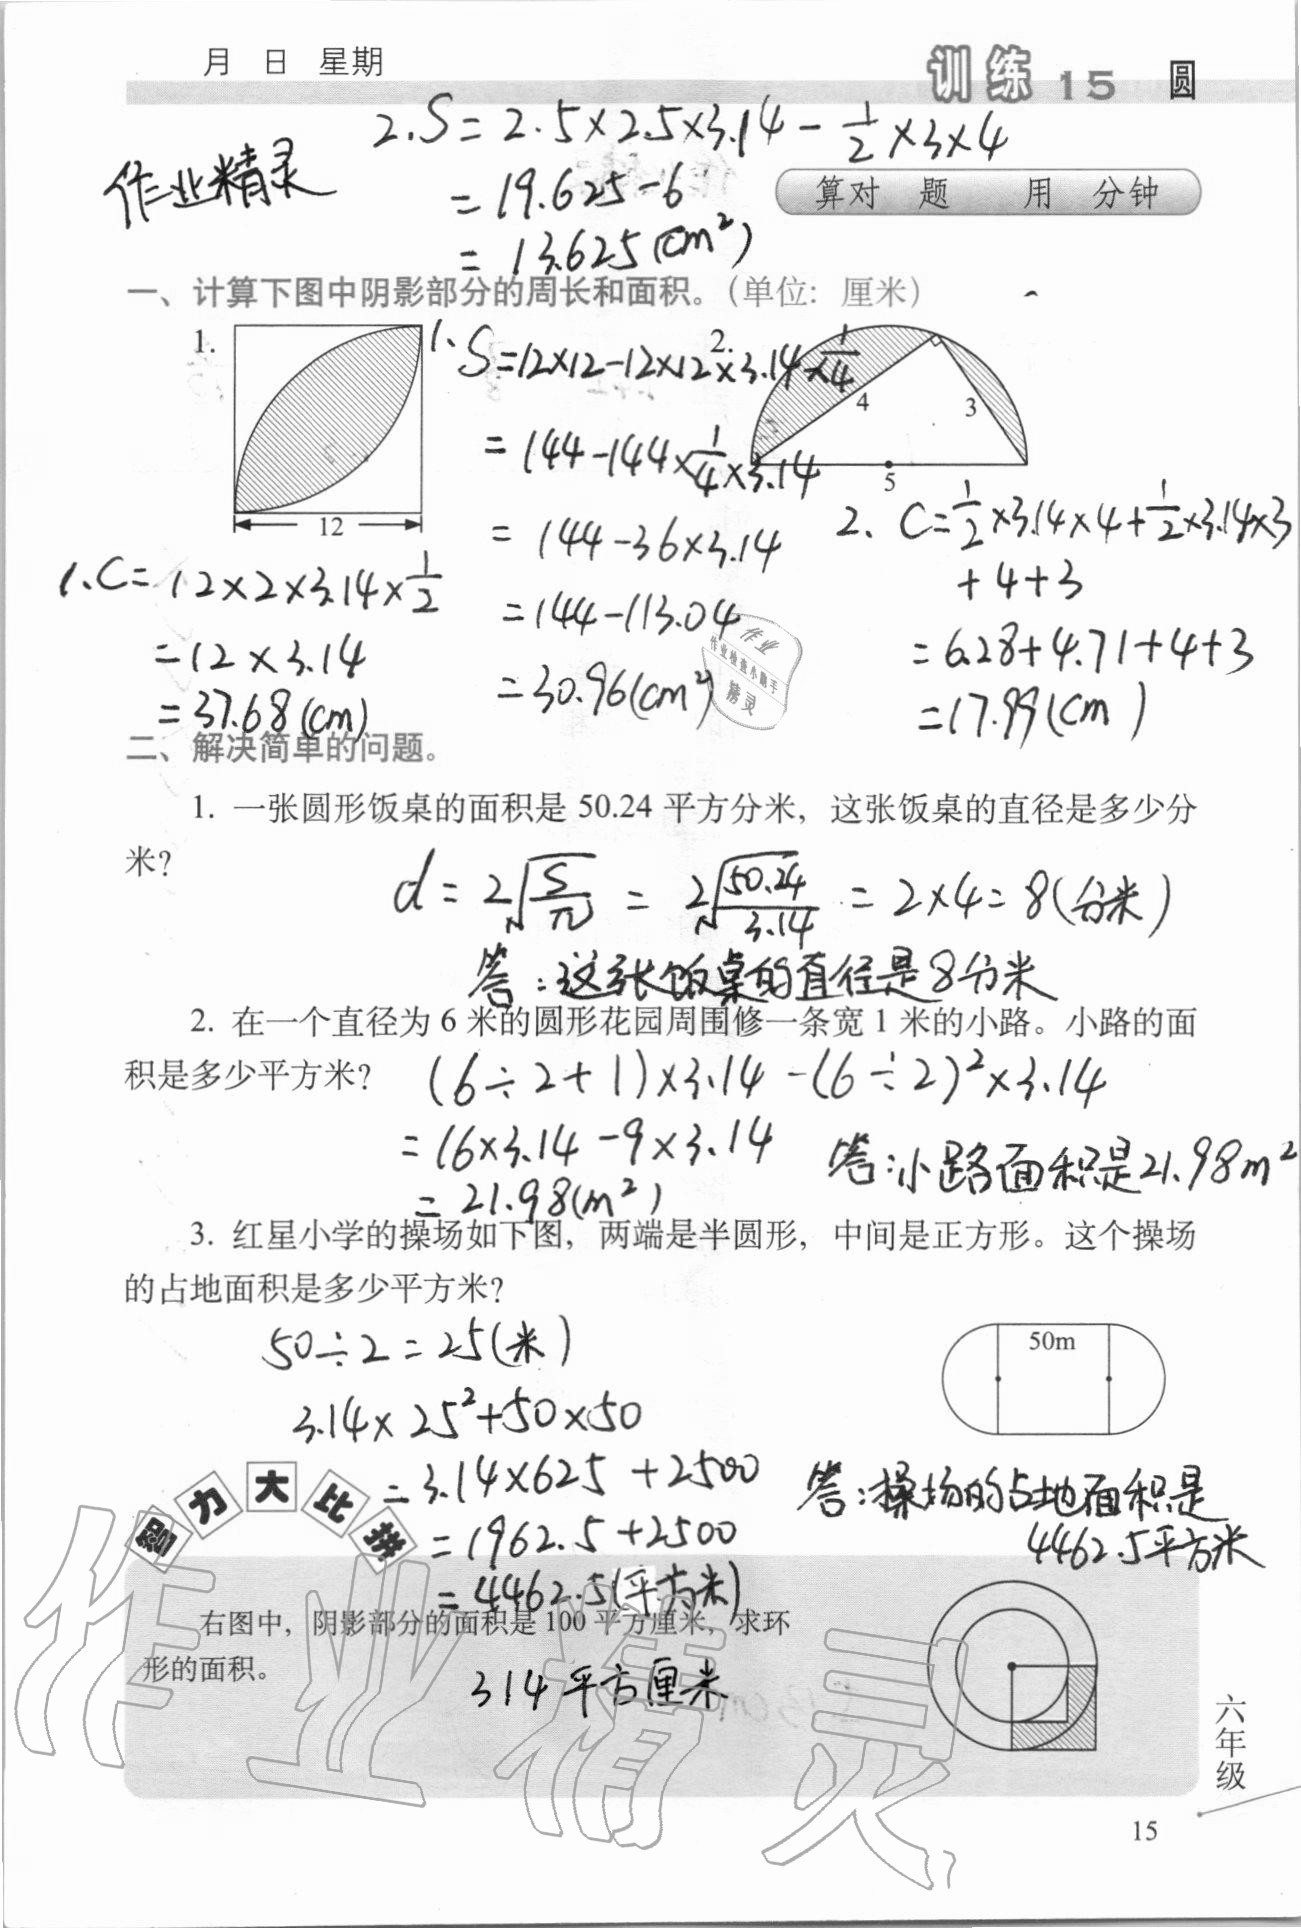 月 日 星期
训练 15 圆
2.S=2.5×2.5×3.14-1/2×3×4
作业精灵
=19.625-6
=13.625(cm²)
算对 题 用 分钟
一、计算下图中阴影部分的周长和面积。(单位：厘米)
1.
12
1.S=12×12-12×12×3.14×1/4
=144-144×1/4×3.14
=144-36×3.14
=144-113.04
=30.96(cm²)
2.
4
3
5
1.C=12×2×3.14×1/2
=12×3.14
=37.68(cm)
2.C=1/2×3.14×4+1/2×3.14×3
+4+3
=6.28+4.71+4+3
=17.99(cm)
作业
作业检查小助手
精灵
二、解决简单的问题。
1. 一张圆形饭桌的面积是 50.24 平方分米，这张饭桌的直径是多少分
米？
d=2√S/π=2√50.24/3.14=2×4=8(分米)
答：这张饭桌的直径是8分米
2. 在一个直径为 6 米的圆形花园周围修一条宽 1 米的小路。小路的面
积是多少平方米？
(6÷2+1)×3.14-(6÷2)²×3.14
=16×3.14-9×3.14
=21.98(m²)
答：小路面积是21.98m²
3. 红星小学的操场如下图，两端是半圆形，中间是正方形。这个操场
的占地面积是多少平方米？
50÷2=25(米)
3.14×25²+50×50
=3.14×625+2500
=1962.5+2500
=4462.5(平方米)
50m
答：操场的占地面积是
4462.5平方米
智力大比拼
右图中，阴影部分的面积是 100 平方厘米，求环
形的面积。
314平方厘米
作业精灵
六年级
15